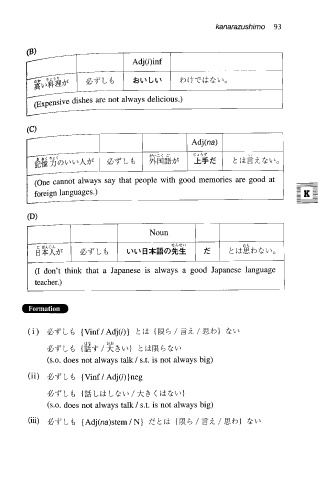 kanarazushimo 93
(B)
Adj(i)inf
高い料理が 必ずしも おいしい わけではない。
(Expensive dishes are not always delicious.)
(C)
Adj(na)
記憶力のいい人が 必ずしも 外国語が 上手だ とは言えない。
(One cannot always say that people with good memories are good at
foreign languages.)
K
(D)
Noun
日本人が 必ずしも いい日本語の先生 だ とは思わない。
(I don't think that a Japanese is always a good Japanese language
teacher.)
Formation
(i) 必ずしも {Vinf / Adj(i)} とは {限ら / 言え / 思わ} ない
必ずしも {話す / 大きい} とは限らない
(s.o. does not always talk / s.t. is not always big)
(ii) 必ずしも {Vinf / Adj(i)}neg
必ずしも {話しはしない / 大きくはない}
(s.o. does not always talk / s.t. is not always big)
(iii) 必ずしも {Adj(na)stem / N} だとは {限ら / 言え / 思わ} ない